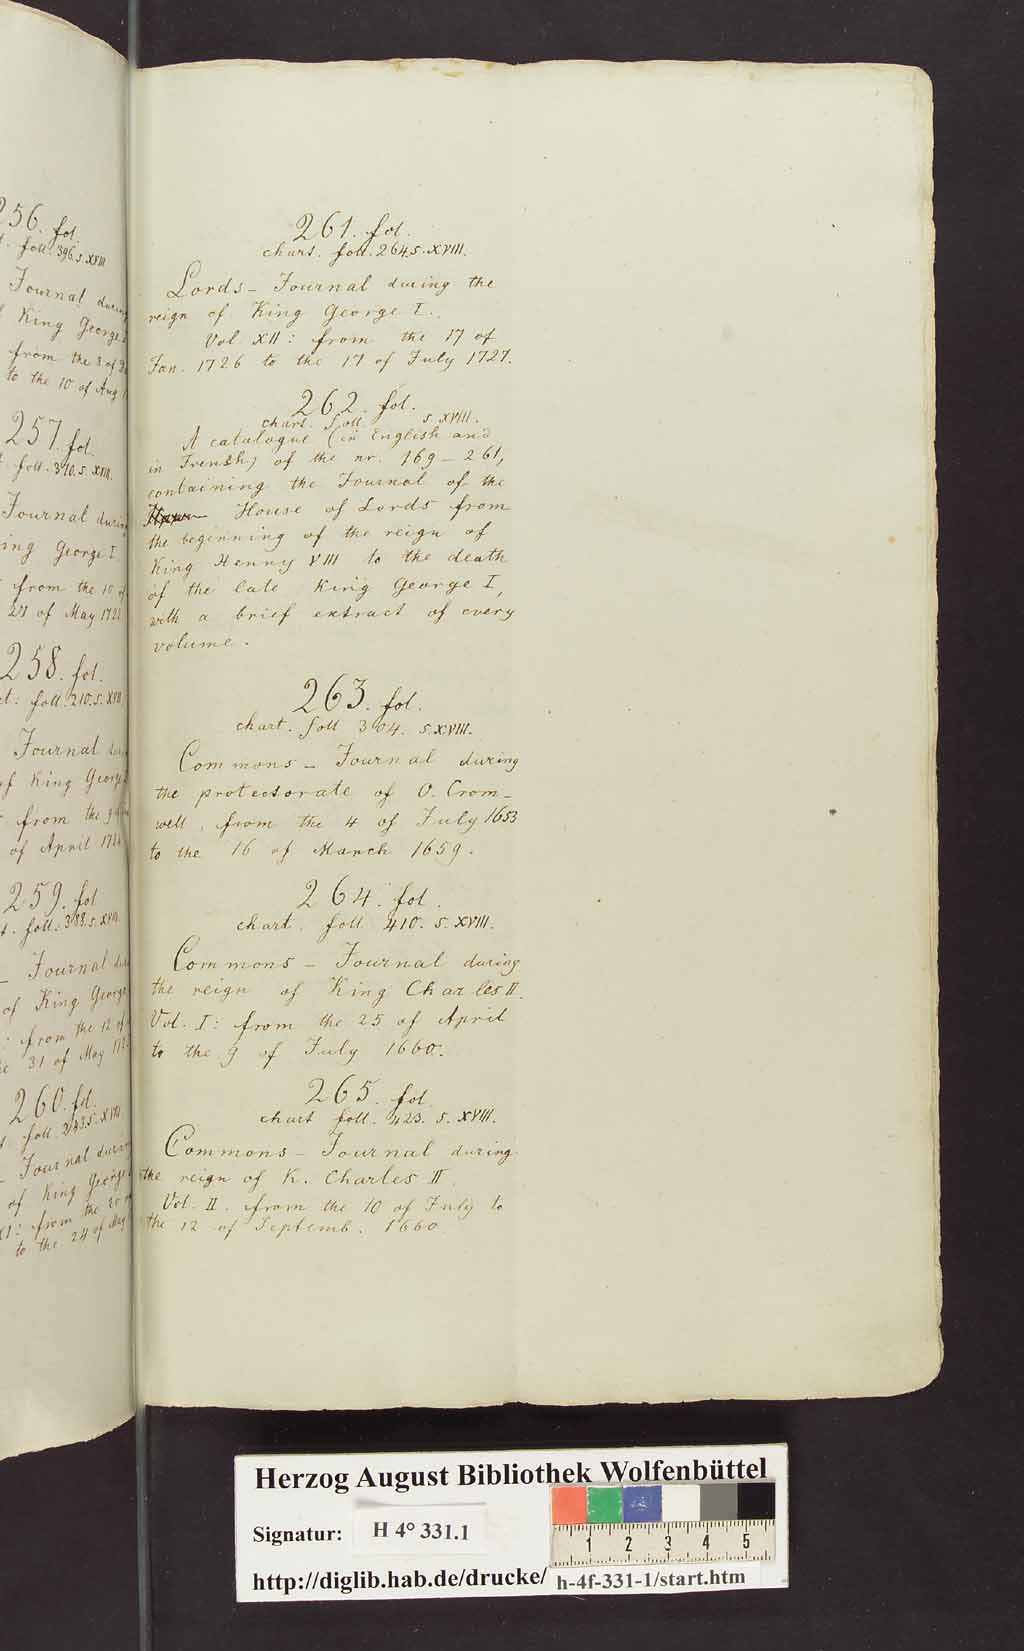 256. fol.
foll. 396. s. XVIII
Journal during
King George I
from the 3 of
to the 10 of Aug
257. fol.
foll. 370. s. XVIII.
Journal during
King George I.
from the 10 of
21 of May 1722
258. fol.
foll. 210. s. XVIII
Journal
of King George
from the 9 of
of April 1724
259. fol
foll. 383. s. XVIII.
Journal
of King George
from the 12 of
31 of May 172
260. fol.
foll. 243. s. XVIII
Journal during
of King George
XI: from the 20
to the 24 of May
261. fol.
chart. foll. 264. s. XVIII.
Lords-Journal during the
reign of King George I.
Vol XII: from the 17 of
Jan. 1726 to the 17 of July 1727.
262. fol.
chart. foll. s. XVIII.
A catalogue (in English and
in French) of the nr. 169-261,
containing the Journal of the
House of Lords from
the beginning of the reign of
King Henry VIII to the death
of the late King George I,
with a brief extract of every
volume.
263. fol.
chart. foll 304. s. XVIII.
Commons-Journal during
the protectorate of O. Crom-
well, from the 4 of July 1653
to the 16 of March 1659.
264. fol.
chart. foll 410. s. XVIII.
Commons-Journal during
the reign of King Charles II.
Vol. I: from the 25 of April
to the 9 of July 1660.
265. fol.
chart foll. 423. s. XVIII.
Commons-Journal during
the reign of K. Charles II.
Vol. II. from the 10 of July to
the 12 of Septemb. 1660.
Herzog August Bibliothek Wolfenbüttel
Signatur: H 4° 331.1
1 2 3 4 5
http://diglib.hab.de/drucke/ h-4f-331-1/start.htm